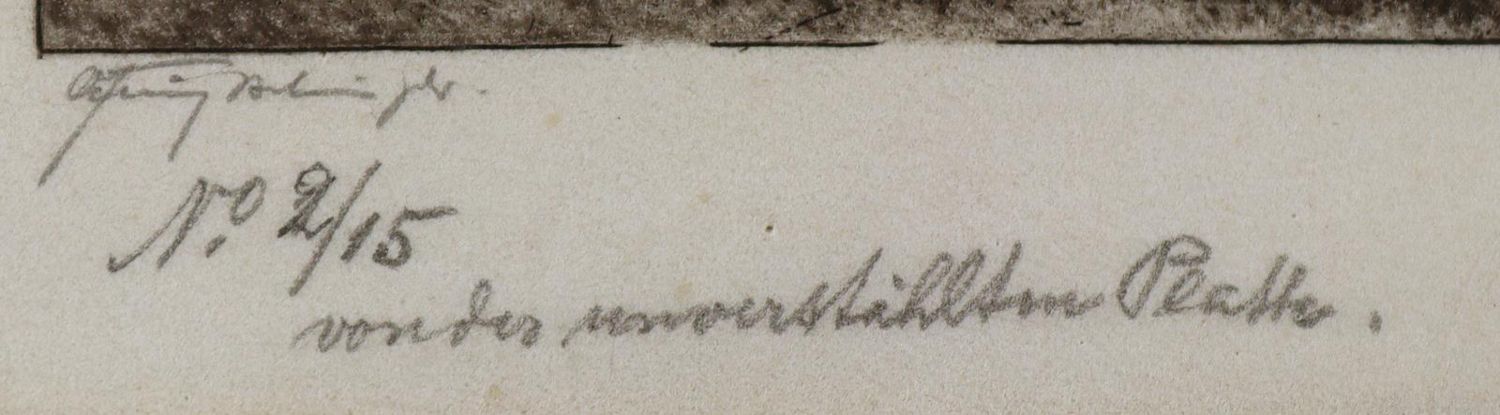 No. 2/15
von der unverstählten Platte.